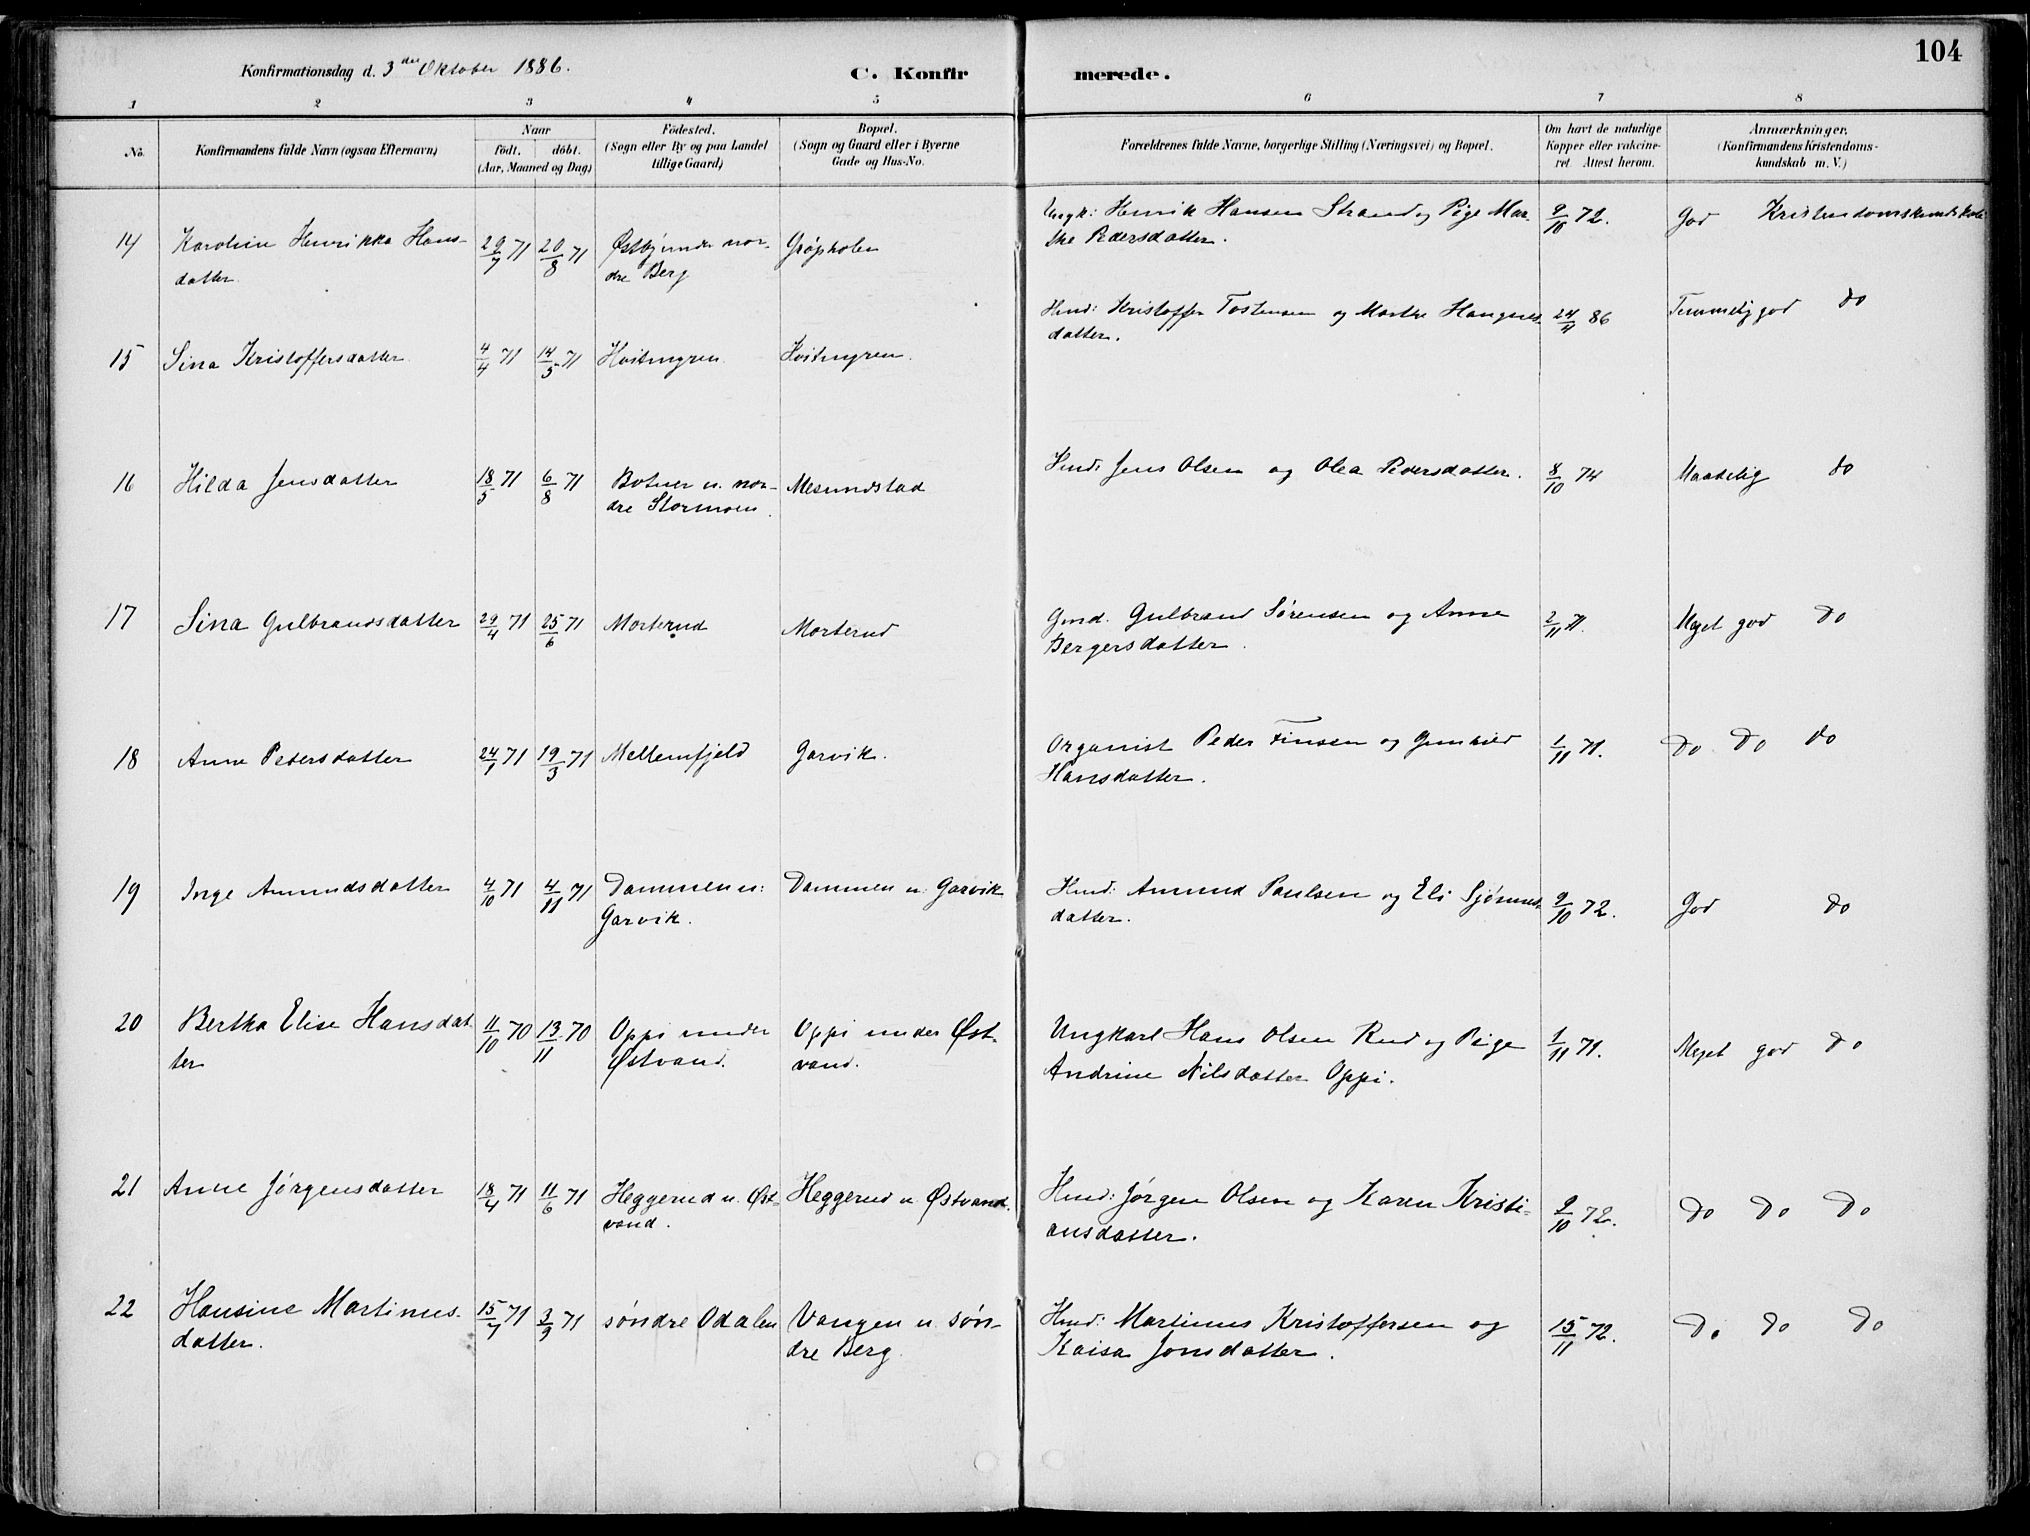 104
Konfirmationsdag d. 3die Oktober 1886.
C. Konfirmerede.
1 2 3 4 5 6 7 8
No.
Konfirmandens fulde Navn (ogsaa Efternavn)
Naar
födt. döbt.
(Aar, Maaned og Dag)
Födested.
(Sogn eller By og paa Landet
tillige Gaard)
Bopæl.
(Sogn og Gaard eller i Byerne
Gade og Hus-No.
Forældrenes fulde Navne, borgerlige Stilling (Næringsvei) og Bopæl.
Om havt de naturlige
Kopper eller vakcine-
ret. Attest herom.
Anmærkninger.
(Konfirmandens Kristendoms-
kundskab m. V.)
14 Karoline Henrikka Hans- 29/7 71 20/8 71 nor- Grøpholen
datter dre Berg
Ungk: Henrik Hansen Strand og Pige Mar- 9/10 72. God Kristendomskundskab
the Pedersdatter.
15 Sina Kristoffersdatter 4/4 71 14/5 71 Hvitmyren Hvitmyren.
Hmd: Kristoffer Tostensen og Marthe 24/4 86 Temmelig god do
datter.
16 Hilda Jensdatter 18/5 71 6/8 71 Botner u. nor- Mesundstad
dre Stormoen.
Hmd: Jens Olsen og Olea Pedersdatter. 8/10 74 Maadelig do
17 Sina Gulbrandsdatter 29/4 71 25/6 71 Morterud Morterud
Gmd. Gulbrand Sørensen og Anne 2/11 71. Meget god do
Bergersdatter.
18 Anne Pedersdatter 24/1 71 19/3 71 Mellemfjeld Garvik.
Organist Peder Finsen og Gunhild 1/11 71. do do do
Hansdatter.
19 Inge Amundsdatter 4/10 71 4/11 71 Dammen u: Dammen u. Garvik
Garvik.
Hmd: Amund Paulsen og Eli 9/10 72. God do
datter.
20 Bertha Elise Hansdat- 11/10 70 13/11 70 Oppi under Oppi under Øst-
ter Østvand. vand.
Ungkarl Hans Olsen Rud og Pige 1/11 71. Meget god do
Andrine Nilsdatter Oppi.
21 Anne Jørgensdatter 18/4 71 11/6 71 Heggerud u. Øst- Heggerud u Østvand.
vand.
Hmd: Jørgen Olsen og Karen Kristi- 9/10 72. do do do
ansdatter.
22 Hansine Martinus- 15/7 71 3/9 71 søndre Odalen Vangen u. søn-
datter. dre Berg
Hmd: Martinus Kristoffersen og 15/11 72. do do do
Kaisa Jonsdatter.